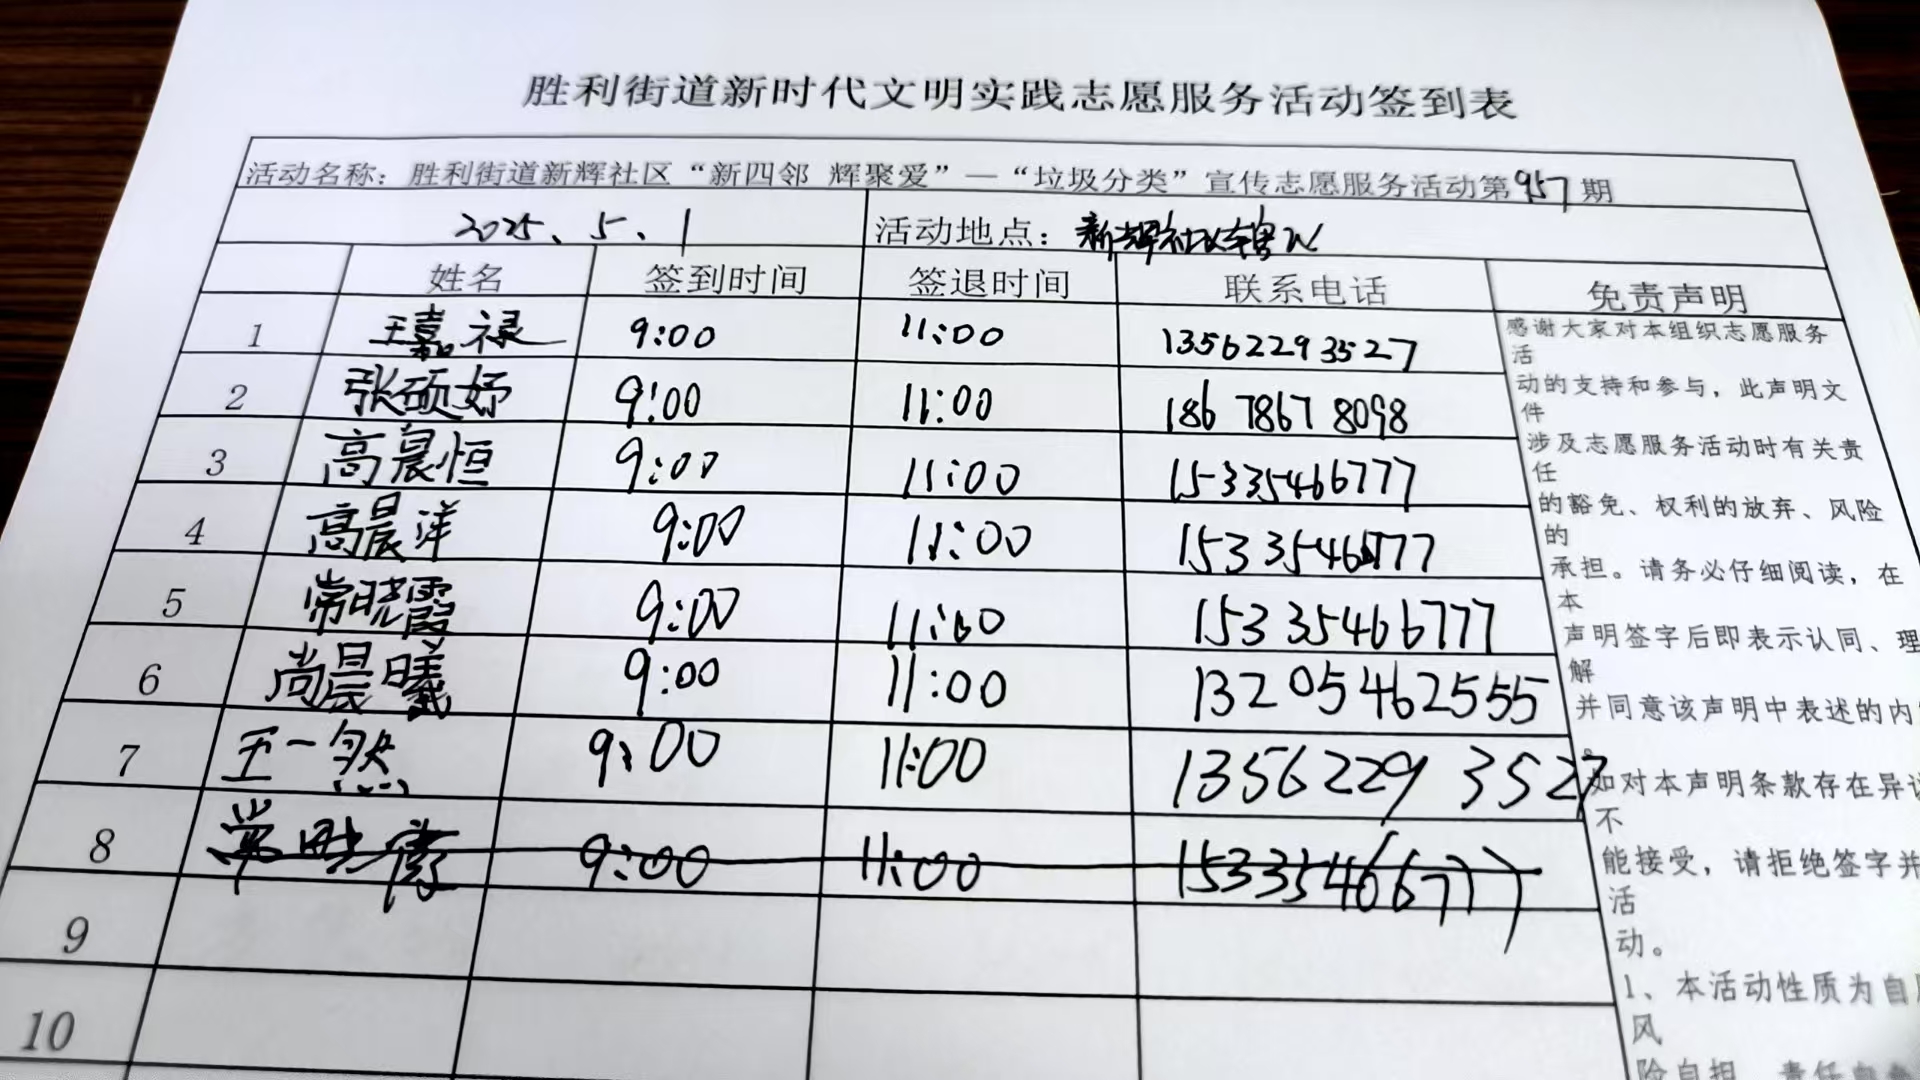 胜利街道新时代文明实践志愿服务活动签到表
活动名称：胜利街道新辉社区“新四邻 辉聚爱”—“垃圾分类”宣传志愿服务活动第957期
2025、5、1 活动地点：新辉社区辖区
姓名 签到时间 签退时间 联系电话 免责声明
1 王嘉禄 9:00 11:00 13562293527
2 张硕妤 9:00 11:00 186 7867 8098
3 高晨恒 9:00 11:00 15335466777
4 高晨洋 9:00 11:00 15335466777
5 常晓霞 9:00 11:00 15335466777
6 尚晨曦 9:00 11:00 13205462555
7 王一然 9:00 11:00 13562293527
8 常晓 9:00 11:00 15335466777
9
10
感谢大家对本组织志愿服务
活
动的支持和参与，此声明文
件
涉及志愿服务活动时有关责
任
的豁免、权利的放弃、风险
的
承担。请务必仔细阅读，在
本
声明签字后即表示认同、理
解
并同意该声明中表述的内
如对本声明条款存在异
不
能接受，请拒绝签字并
活
动。
1、本活动性质为自
风
险自担，责任自